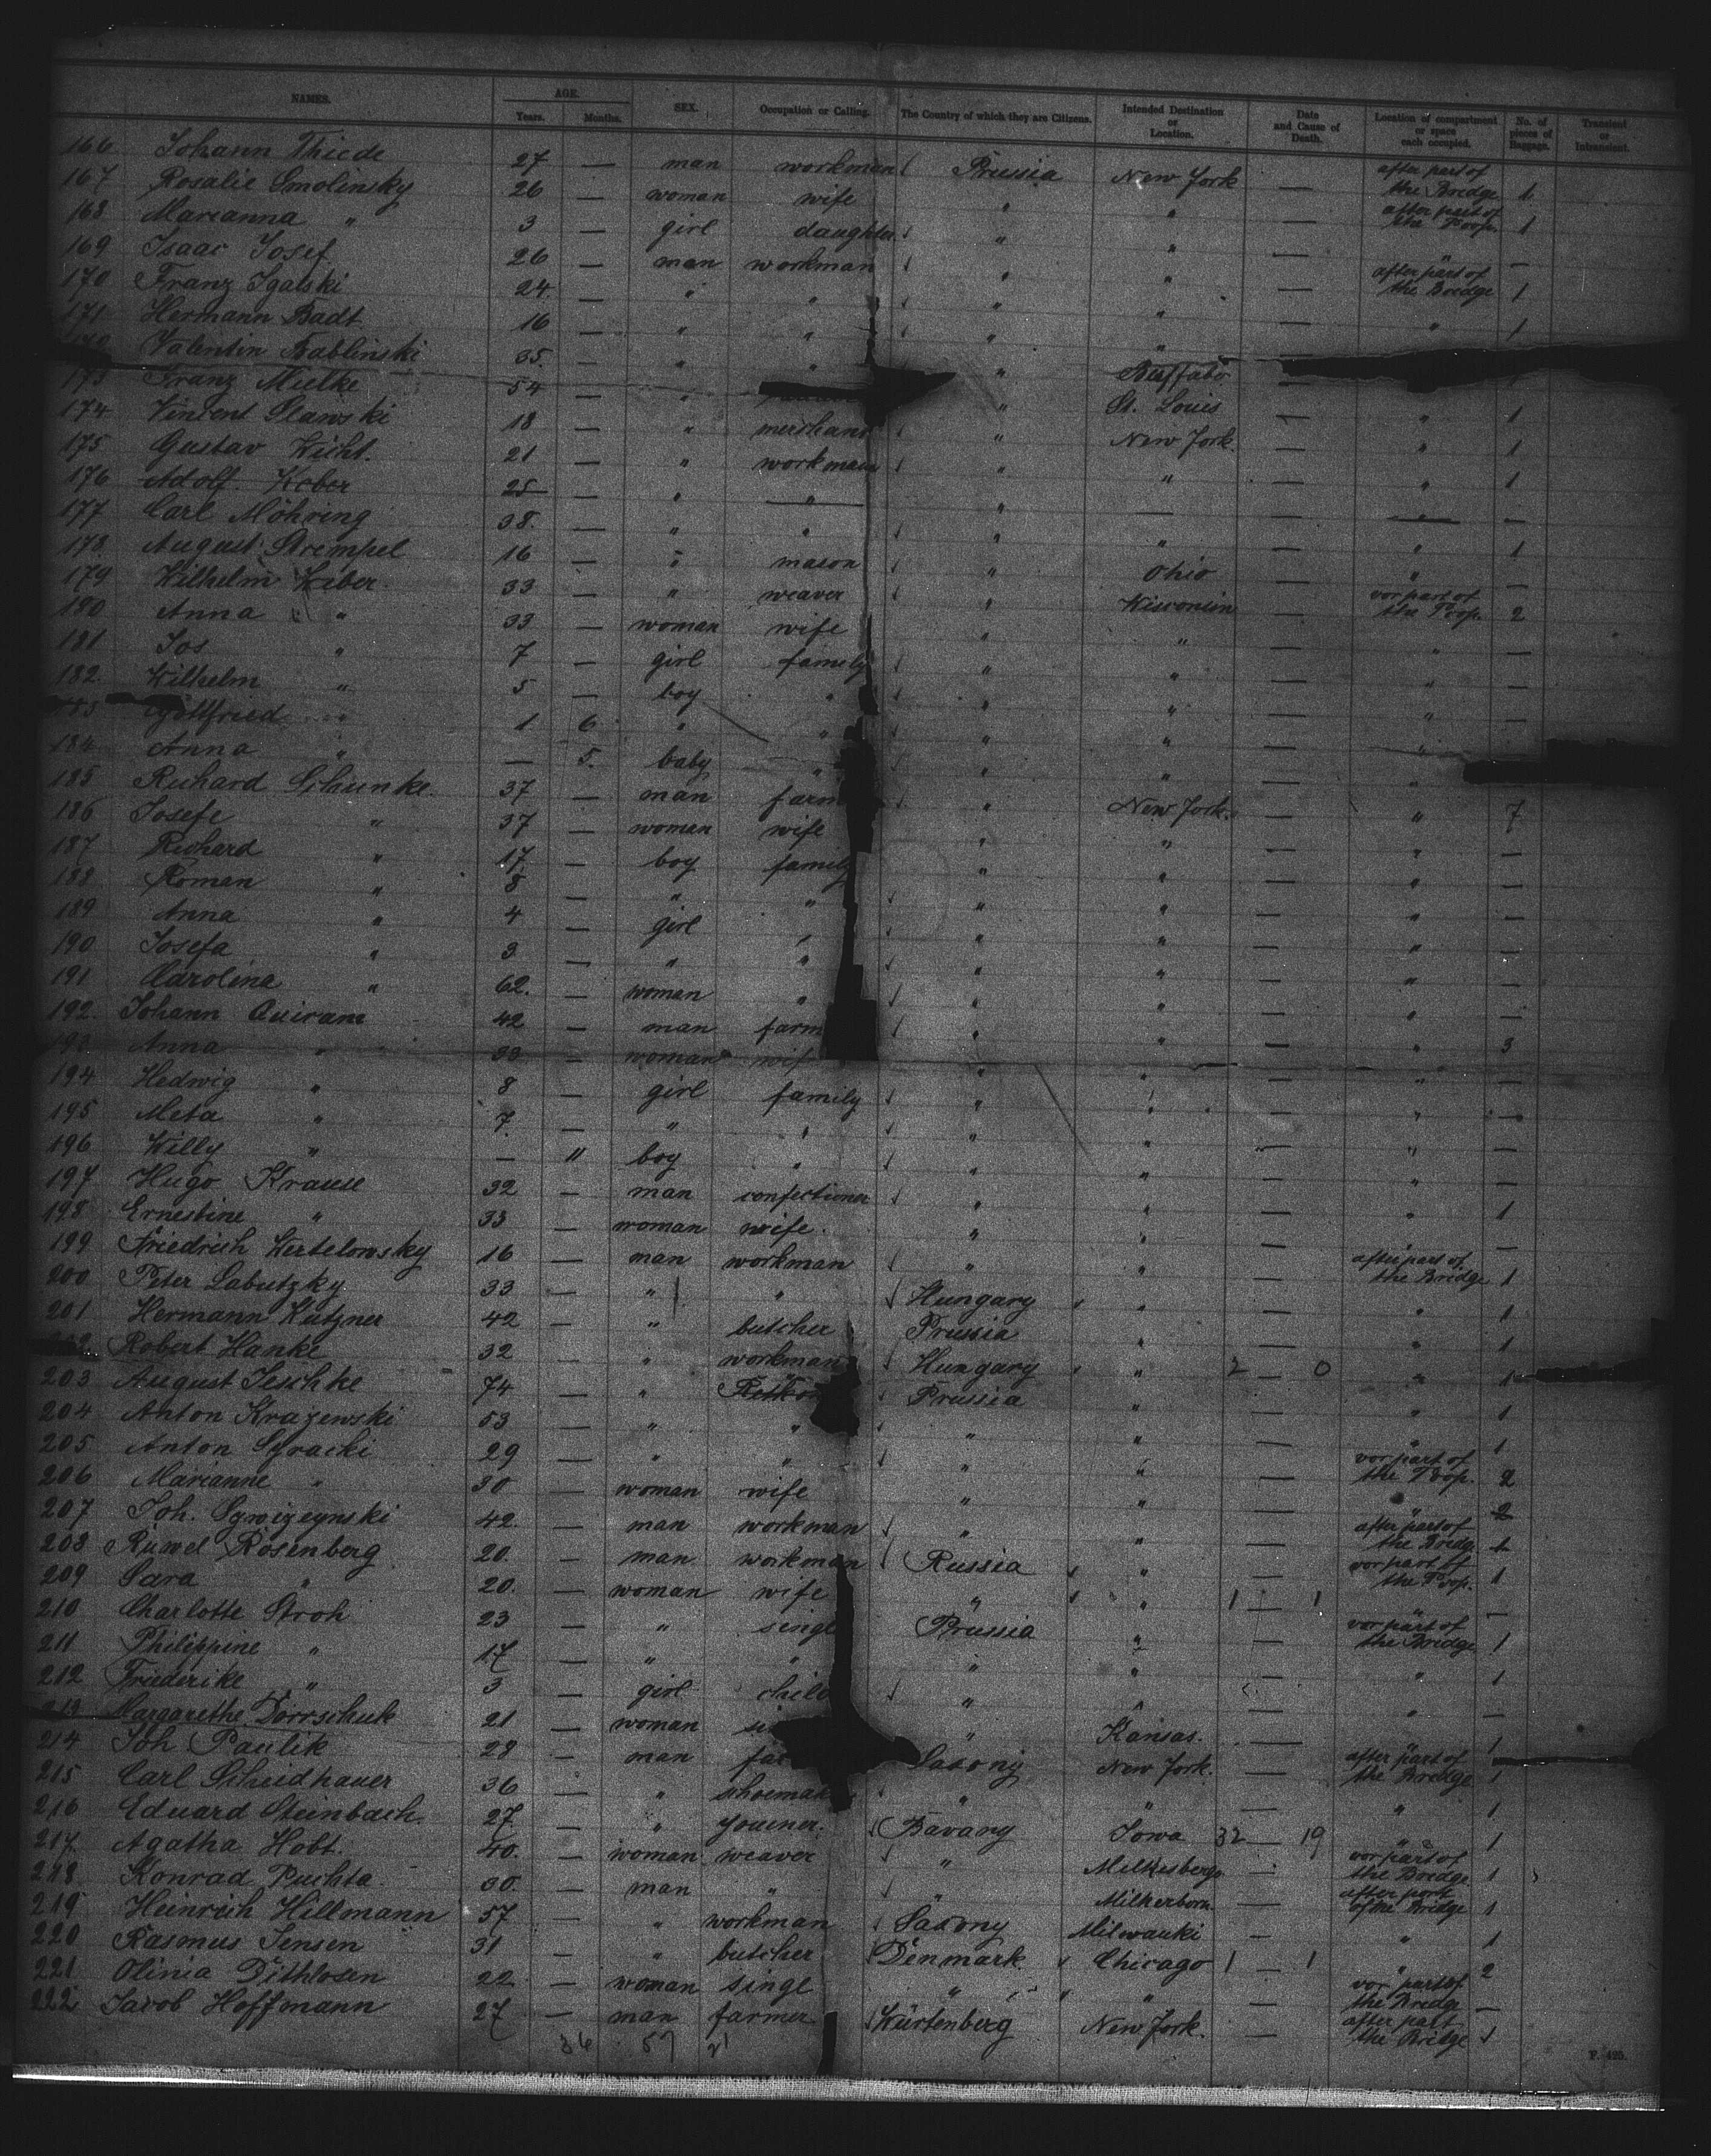 NAMES. AGE. Years. Months. SEX. Occupation or Calling. The Country of which they are Citizens. Intended Destination or Location. Date and Cause of Death. Location of compartment or space each occupied. No. of pieces of Baggage. Transient or Intransient.
166 Johann Thiede 27 — man workman Prussia New York — after part of the Bridge 1
167 Rosalie Smolinsky 26 — woman wife " " — after part of the Poop. 1
168 Marianna " 3 — girl daughter " " — " —
169 Isaac Josef 26 — man workman " " — after part of the Bridge 1
170 Franz Igalski 24 — " " " " — " 1
171 Hermann Badt 16 — " " " " —
Valentin Bablinski 35. — " " " Buffalo —
173 Franz Mielke 54 — " " St. Louis — " 1
174 Vincent Slawski 18 — " merchant " New York. — " 1
175 Gustav Wicht. 21 — " workman " " — " 1
176 Adolf Kober 25 — " " " — — " —
177 Carl Möhring 38. — " " " " — " 1
178. August Strempel 16 — " mason " Ohio — " —
179 Wilhelm Weber. 33 — " weaver " Wisconsin — vor part of the Poop. 2
180 Anna " 33 — woman wife " " — " —
181 Jos " 7 — girl family " " — " —
182. Wilhelm " 5 — boy " " " — " —
Gottfried " 1 6 " " " " — "
184 Anna " — 5. baby " " " — "
185 Richard Schunke. 37 — man farm " New York. — " 7
186 Josefe " 37 — woman wife " " — " —
187 Richard " 17. — boy family " " — " —
188 Roman " 8 — " " " " — " —
189 Anna " 4 — girl " " " — " —
190 Josefa " 3 — " " " " — " —
191 Carolina " 62. — woman " " " — " —
192. Johann Quiram 42 — man farm " " — " 3
193 Anna " 33 — woman wife " " — " —
194 Hedwig " 8 — girl family " " — " —
195 Meta " 7. — " " " " — " —
196 Willy " — 11 boy " " " — " —
197 Hugo Krause 32 — man confectioner " " — " 1
198 Ernestine " 33 — woman wife. " " — —
199 Friedrich Wertelowsky 16 — man workman " " — after part of the Bridge 1
200 Peter Labutzky 33 — " " Hungary " — " 1
201 Hermann Kutzner 42 — " butcher Prussia " — " 1
Robert Hanke 32 — " workman Hungary " 2 — 0 " 1
203 August Jeschke 74 — " Prussia " — " 1
204 Anton Krazewski 53 — " " " " — " 1
205 Anton 29 — " " " " — vor part of the Poop. 2
206 Marianne " 30 — woman wife " " — " 2
207 Joh. 42. — man workman " " — after part of the Bridg 1
208 Ruwel Rosenberg 20. — man workman Russia " — vor part of the Poop. 1
209 Sara " 20. — woman wife " " 1 — 1 " —
210 Charlotte Stroh 23 — " singl Prussia " — vor part of the Bridge 1
211 Philippine " 17 — " " " " — " 1
212 Friederike " 3 — girl child " " — " —
213 Margarethe Dörrschuk 21 — woman si " Kansas. — " 1
214 Joh Paulik 28 — man far Saxony New York. — after part of the Bridge 1
215 Carl Scheidhauer 36 — " shoemak " " — " 1
216 Eduard Steinbach. 27 — " youener. Bavary Iowa 32 — 19 " 1
217. Agatha Hobt. 40. — woman weaver " Milkesberg — vor part of the Bridge 1
218 Konrad Puchta. 30. — man " " Milkerborn. — after port of the Bridge 1
219 Heinrich Hillmann 57 — " workman Saxony Milwauki — " 1
220 Rasmus Jensen 31 — " butcher Denmark Chicago 1 — 1 " 2
221 Olinia Dithlosen 22 — woman singl " " — vor part of the Bridge —
222 Jacob Hoffmann 27 — man farmer Würtenberg New York. — after part the Bridge 1
36 57 21
F. 425.